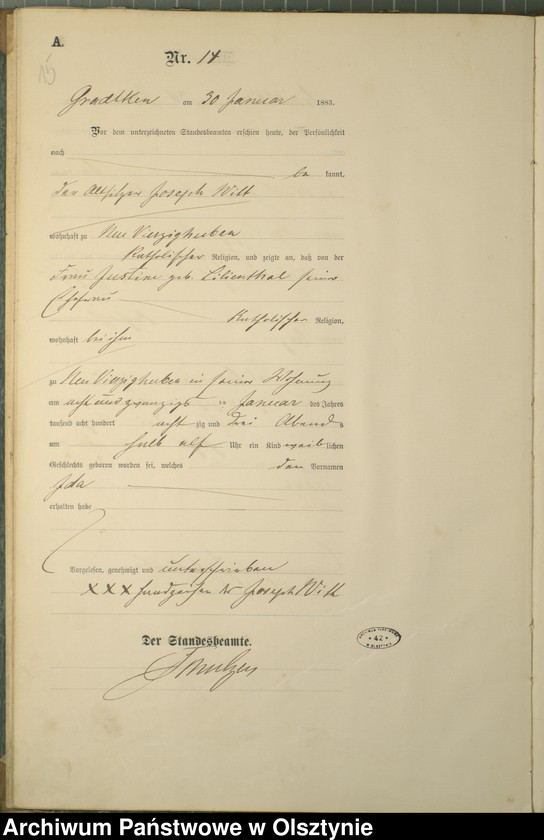 A.
15
Nr. 14
Gradtken am 30 Januar 1883.
Vor dem unterzeichneten Standesbeamten erschien heute, der Persönlichkeit
nach
be kannt,
den Altsitzer Joseph Witt
wohnhaft zu Neu Vierzighuben
Katholischer Religion, und zeigte an, daß von der
Frau Justine geb. Lilienthal seiner
Ehefrau
Katholischer Religion,
wohnhaft bei ihm
zu Neu Vierzighuben in seiner Wohnung
am acht und zwanzigst en Januar des Jahres
tausend acht hundert acht zig und drei Abends
um halb elf Uhr ein Kind weiblichen
Geschlechts geboren worden sei, welches den Vornamen
Ida
erhalten habe
Vorgelesen, genehmigt und unterschrieben
XXX Handzeichen des Joseph Witt
Der Standesbeamte.
42
Archiwum Państwowe w Olsztynie